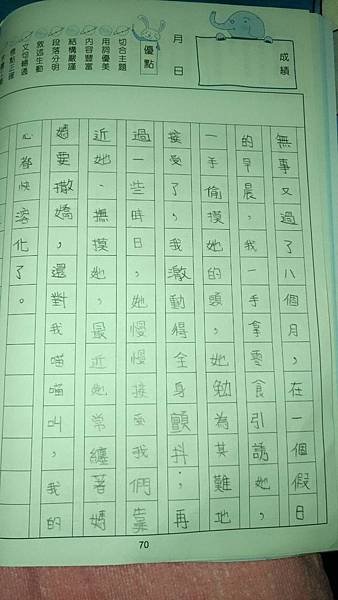 成績
月　日
優點
切合主題
用詞優美
內容豐富
結構嚴謹
段落分明
敘述生動
文句通順
無事又過了八個月，在一個假日
的早晨，我一手拿零食引誘她，
一手偷摸她的頭，她勉為其難地
接受了，我激動得全身顫抖；再
過一些時日，她慢慢接受我們靠
近她、撫摸她，最近她常纏著媽
媽要撒嬌，還對我喵喵叫，我的
心都快溶化了。
70